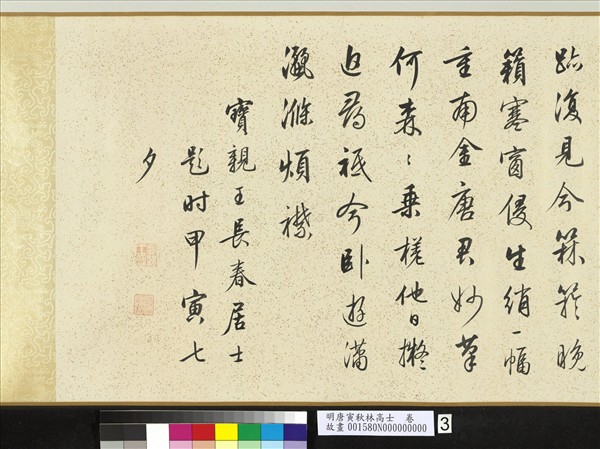 復見今箖箊晚
籟寒窗侵生綃一幅
重南金唐君妙筆
何森〻乘槎他日擬
追尋祗今臥遊瀟
灑滌煩襟
寶親王長春居士
題时甲寅七
夕
明唐寅秋林高士　卷
故畫 001580N000000000
3